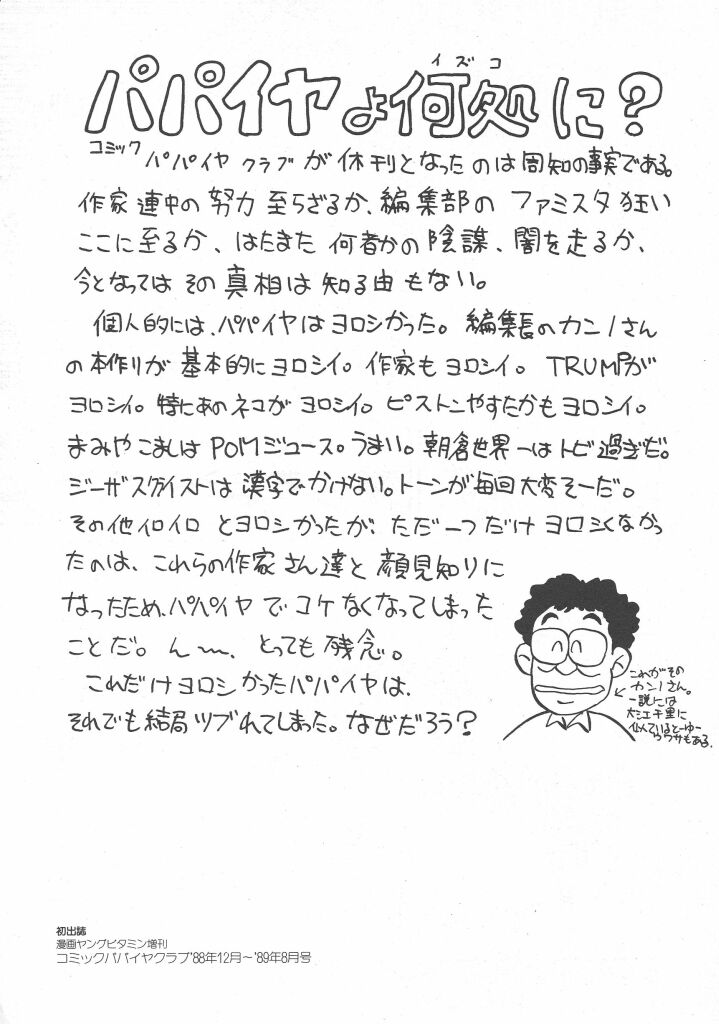 パパイヤよ何処に?
イズコ
コミックパパイヤクラブが休刊となったのは周知の事実である。
作家連中の努力至らざるか、編集部のファミスタ狂い
ここに至るか、はたまた何者かの陰謀、闇を走るか、
今となってはその真相は知る由もない。
個人的には、パパイヤはヨロシかった。編集長のカンノさん
の本作りが基本的にヨロシイ。作家もヨロシイ。TRUMPが
ヨロシイ。特にあのネコがヨロシイ。ピストンやすたかもヨロシイ。
まみやこましはPOMジュース。うまい。朝倉世界一はトビ過ぎだ。
ジーザスグイストは漢字でかけない。トーンが毎回大変そーだ。
その他イロイロとヨロシかったが、ただ一つだけヨロシくなかっ
たのは、これらの作家さん達と顔見知りに
なったため、パパイヤでコケなくなってしまった
ことだ。んー、とっても残念。
これだけヨロシかったパパイヤは、
それでも結局ツブれてしまった。なぜだろう?
これがその
カンノさん。
一説には
大江千里に
似ているとーゆー
ウワサもある。
初出誌
漫画ヤングビタミン増刊
コミックパパイヤクラブ'88年12月〜'89年8月号